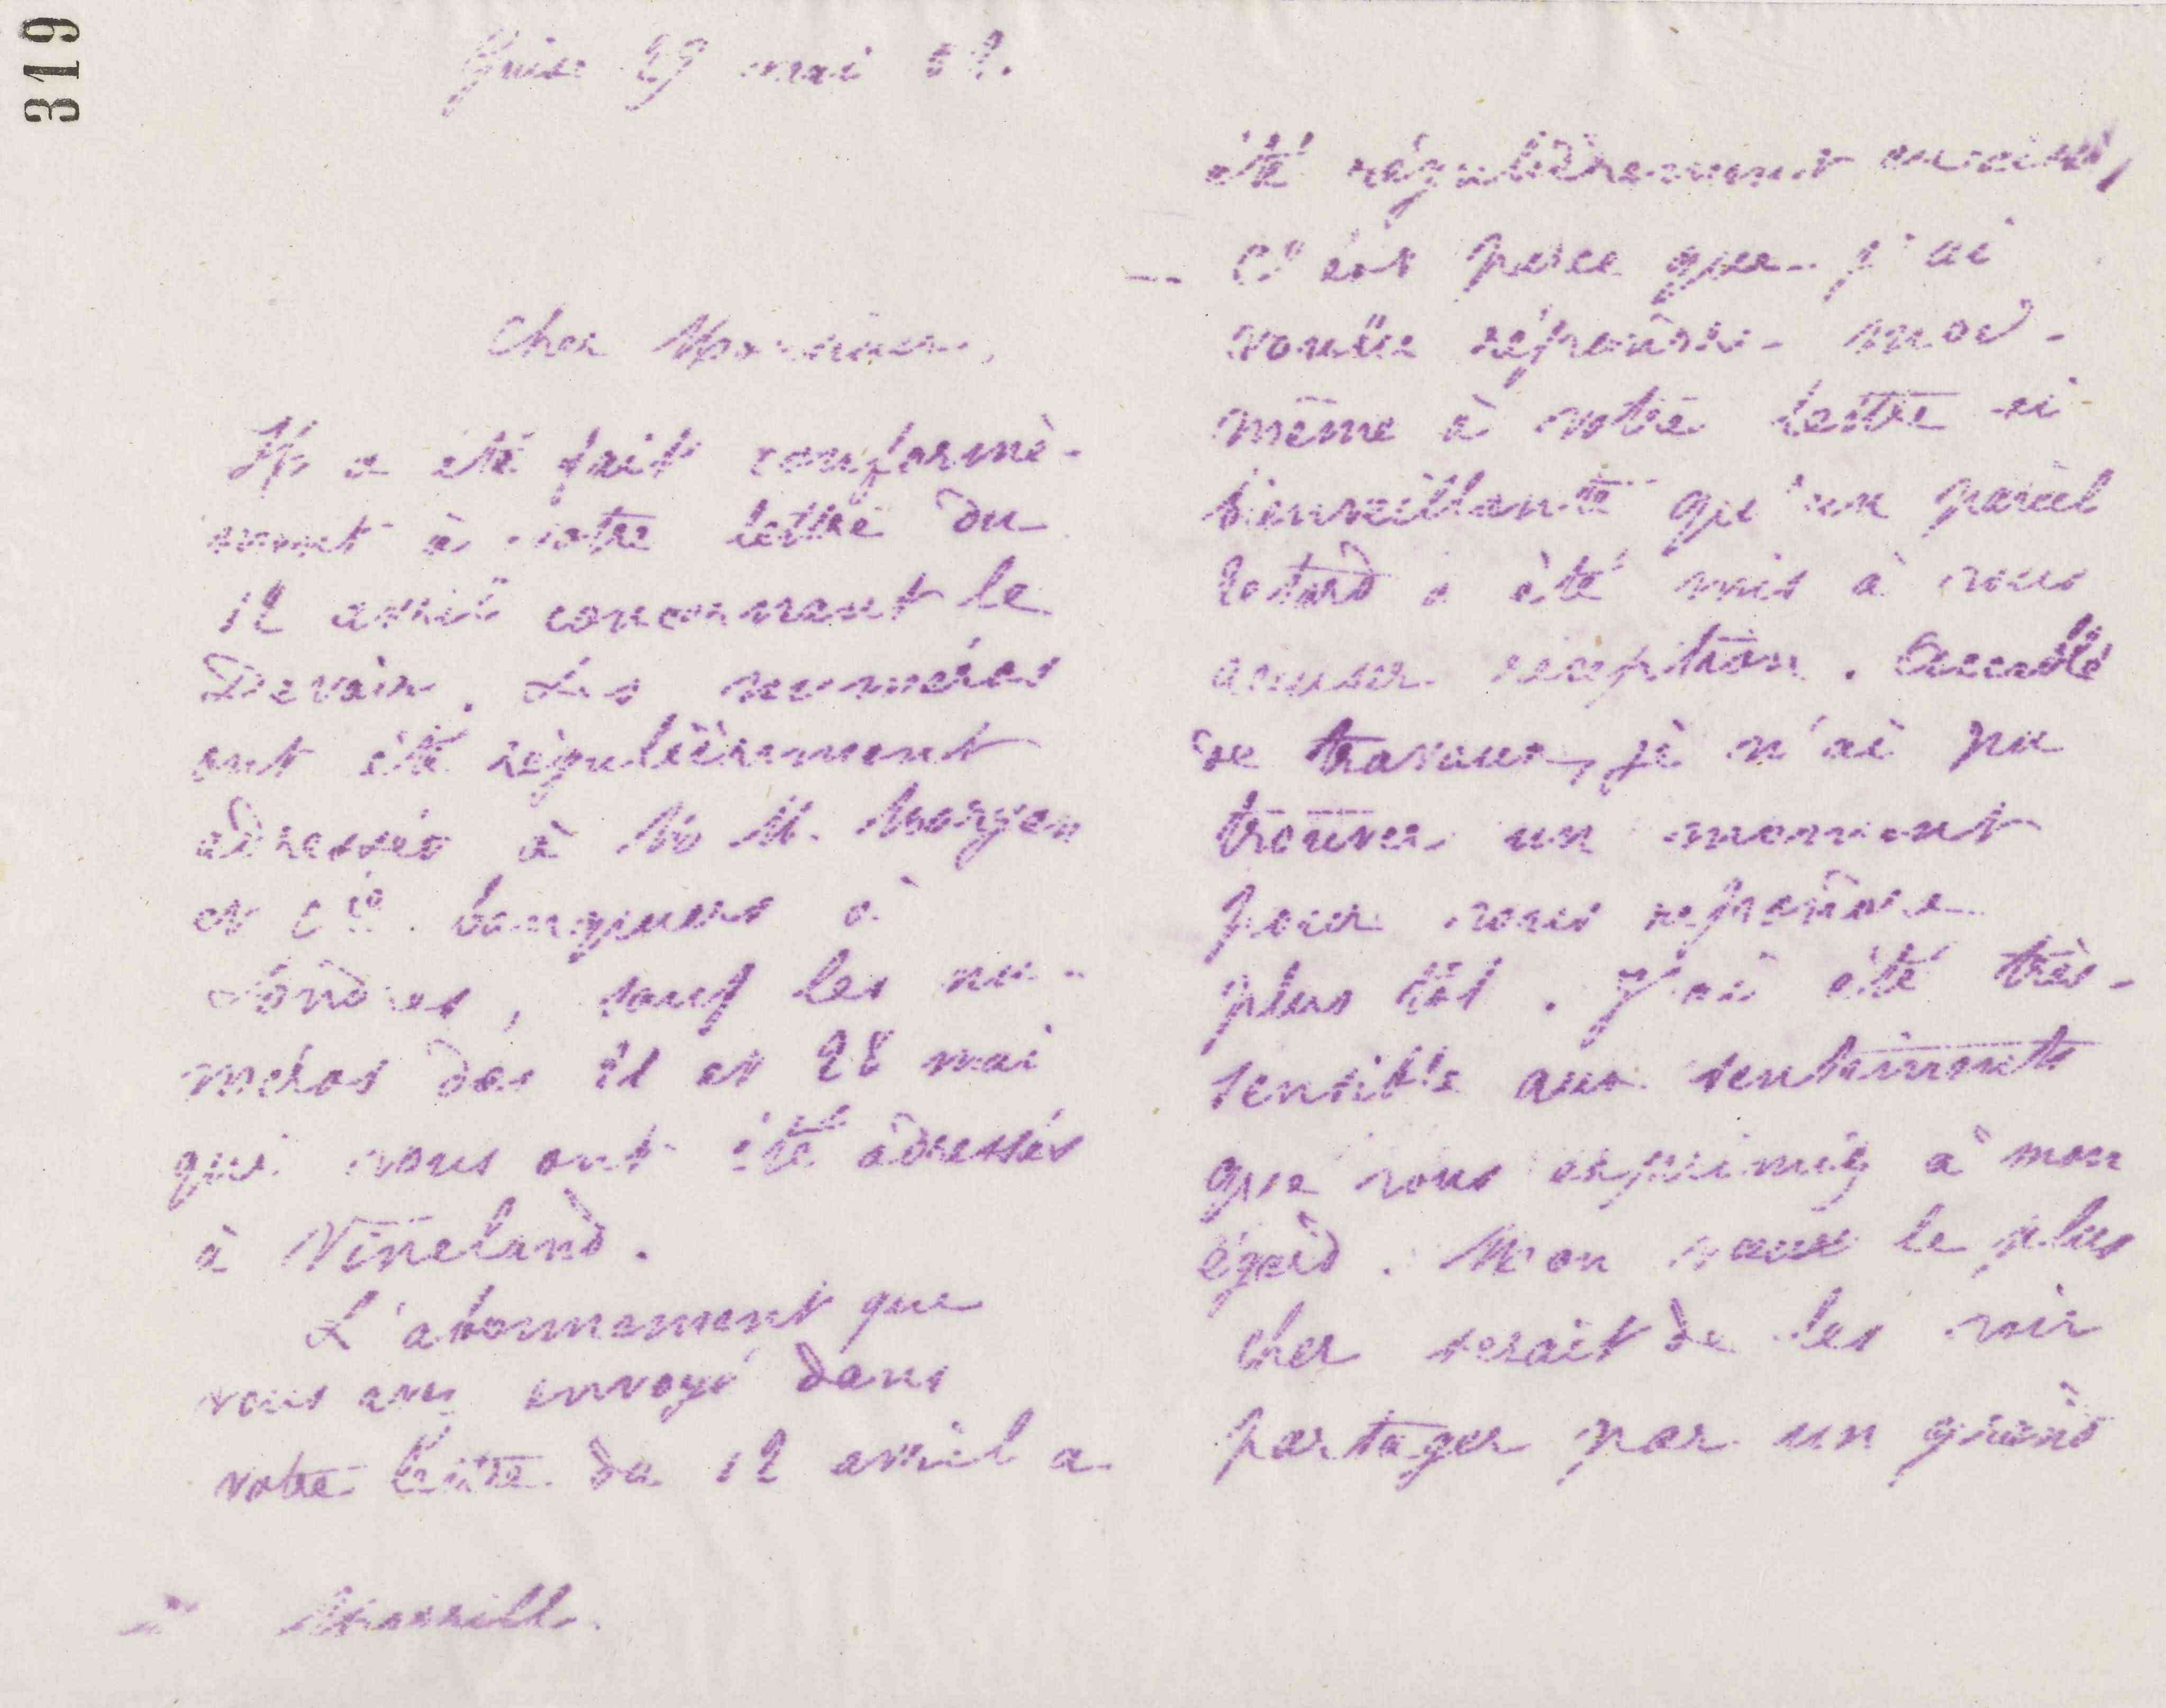 319
Guise 29 mai 82.
Cher Monsieur,
Il a été fait conformé-
ment à votre lettre du
12 avril concernant le
Devoir. Les numéros
ont été régulièrement
adressés à M. M. Morgan
et Cie banquiers à
Londres, sauf les nu-
méros des 21 et 28 mai
qui vous ont été adressés
à Vineland.
L'abonnement que
vous avez envoyé dans
votre lettre du 12 avril a
été régulièrement encaissé,
C'est parce que j'ai
voulu répondre moi-
même à votre lettre si
bienveillante qu'un pareil
retard a été mis à vous
accuser réception. Accablé
de travaux, je n'ai pu
trouver un moment
pour vous répondre
plus tôt. J'ai été très-
sensible aux sentiments
que vous exprimez à mon
égard. Mon vœux le plus
cher serait de les voir
partager par un grand